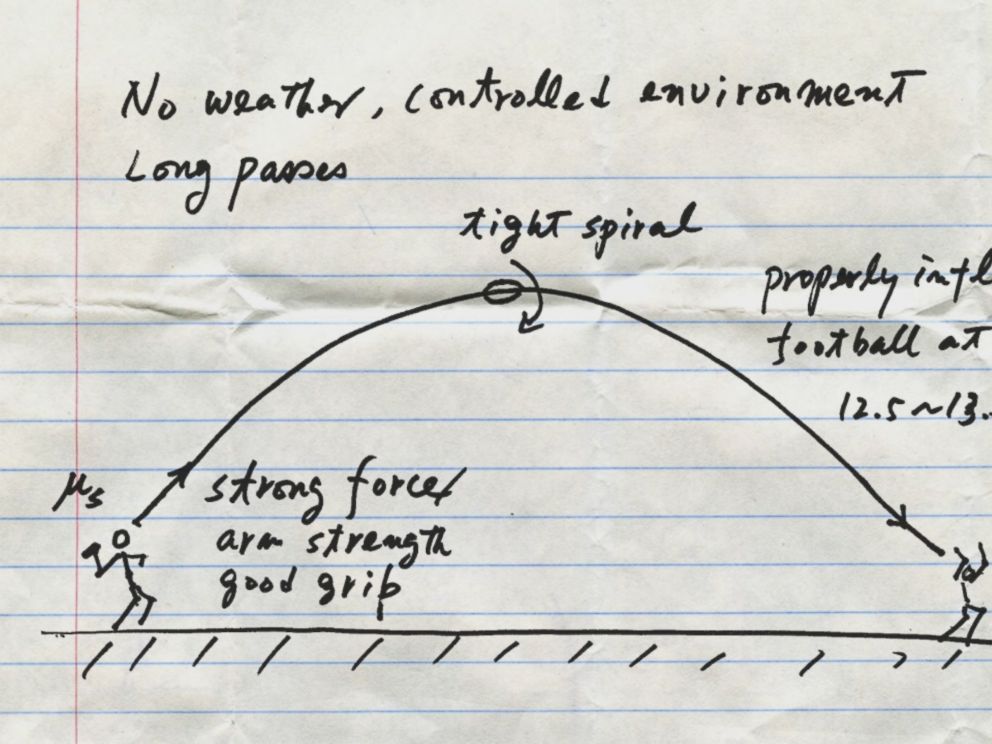 No weather, controlled environment
Long passes
tight spiral
properly infl
football at
12.5~13.
μs
strong force/
arm strength
good grip